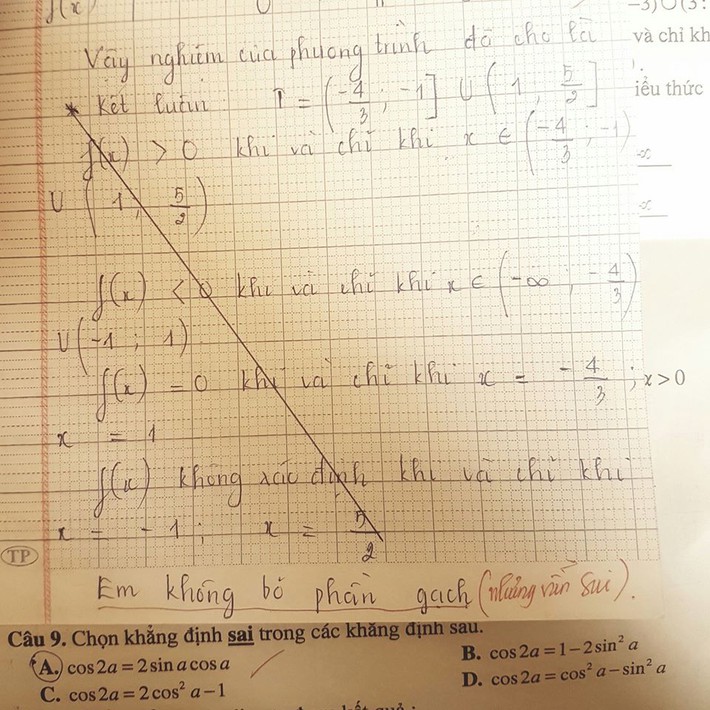 f(x)
-3)∪(3;
và chỉ kh
iểu thức
Vậy nghiệm của phương trình đã cho là
* Kết luận: T = (-4/3 ; -1] ∪ (1 ; 5/2]
f(x) > 0 khi và chỉ khi x ∈ (-4/3 ; -1)
∪ (1 ; 5/2)
f(x) < 0 khi và chỉ khi x ∈ (-∞ ; -4/3)
∪ (-1 ; 1)
f(x) = 0 khi và chỉ khi x = -4/3 ; x>0
x = 1
f(x) không xác định khi và chỉ khi
x = -1 ; x = 5/2
TP
Em không bỏ phần gạch (nhưng vẫn sai).
Câu 9. Chọn khẳng định sai trong các khẳng định sau.
A. cos2a = 2sin a cos a
B. cos2a = 1 − 2sin² a
C. cos2a = 2cos² a − 1
D. cos2a = cos² a − sin² a